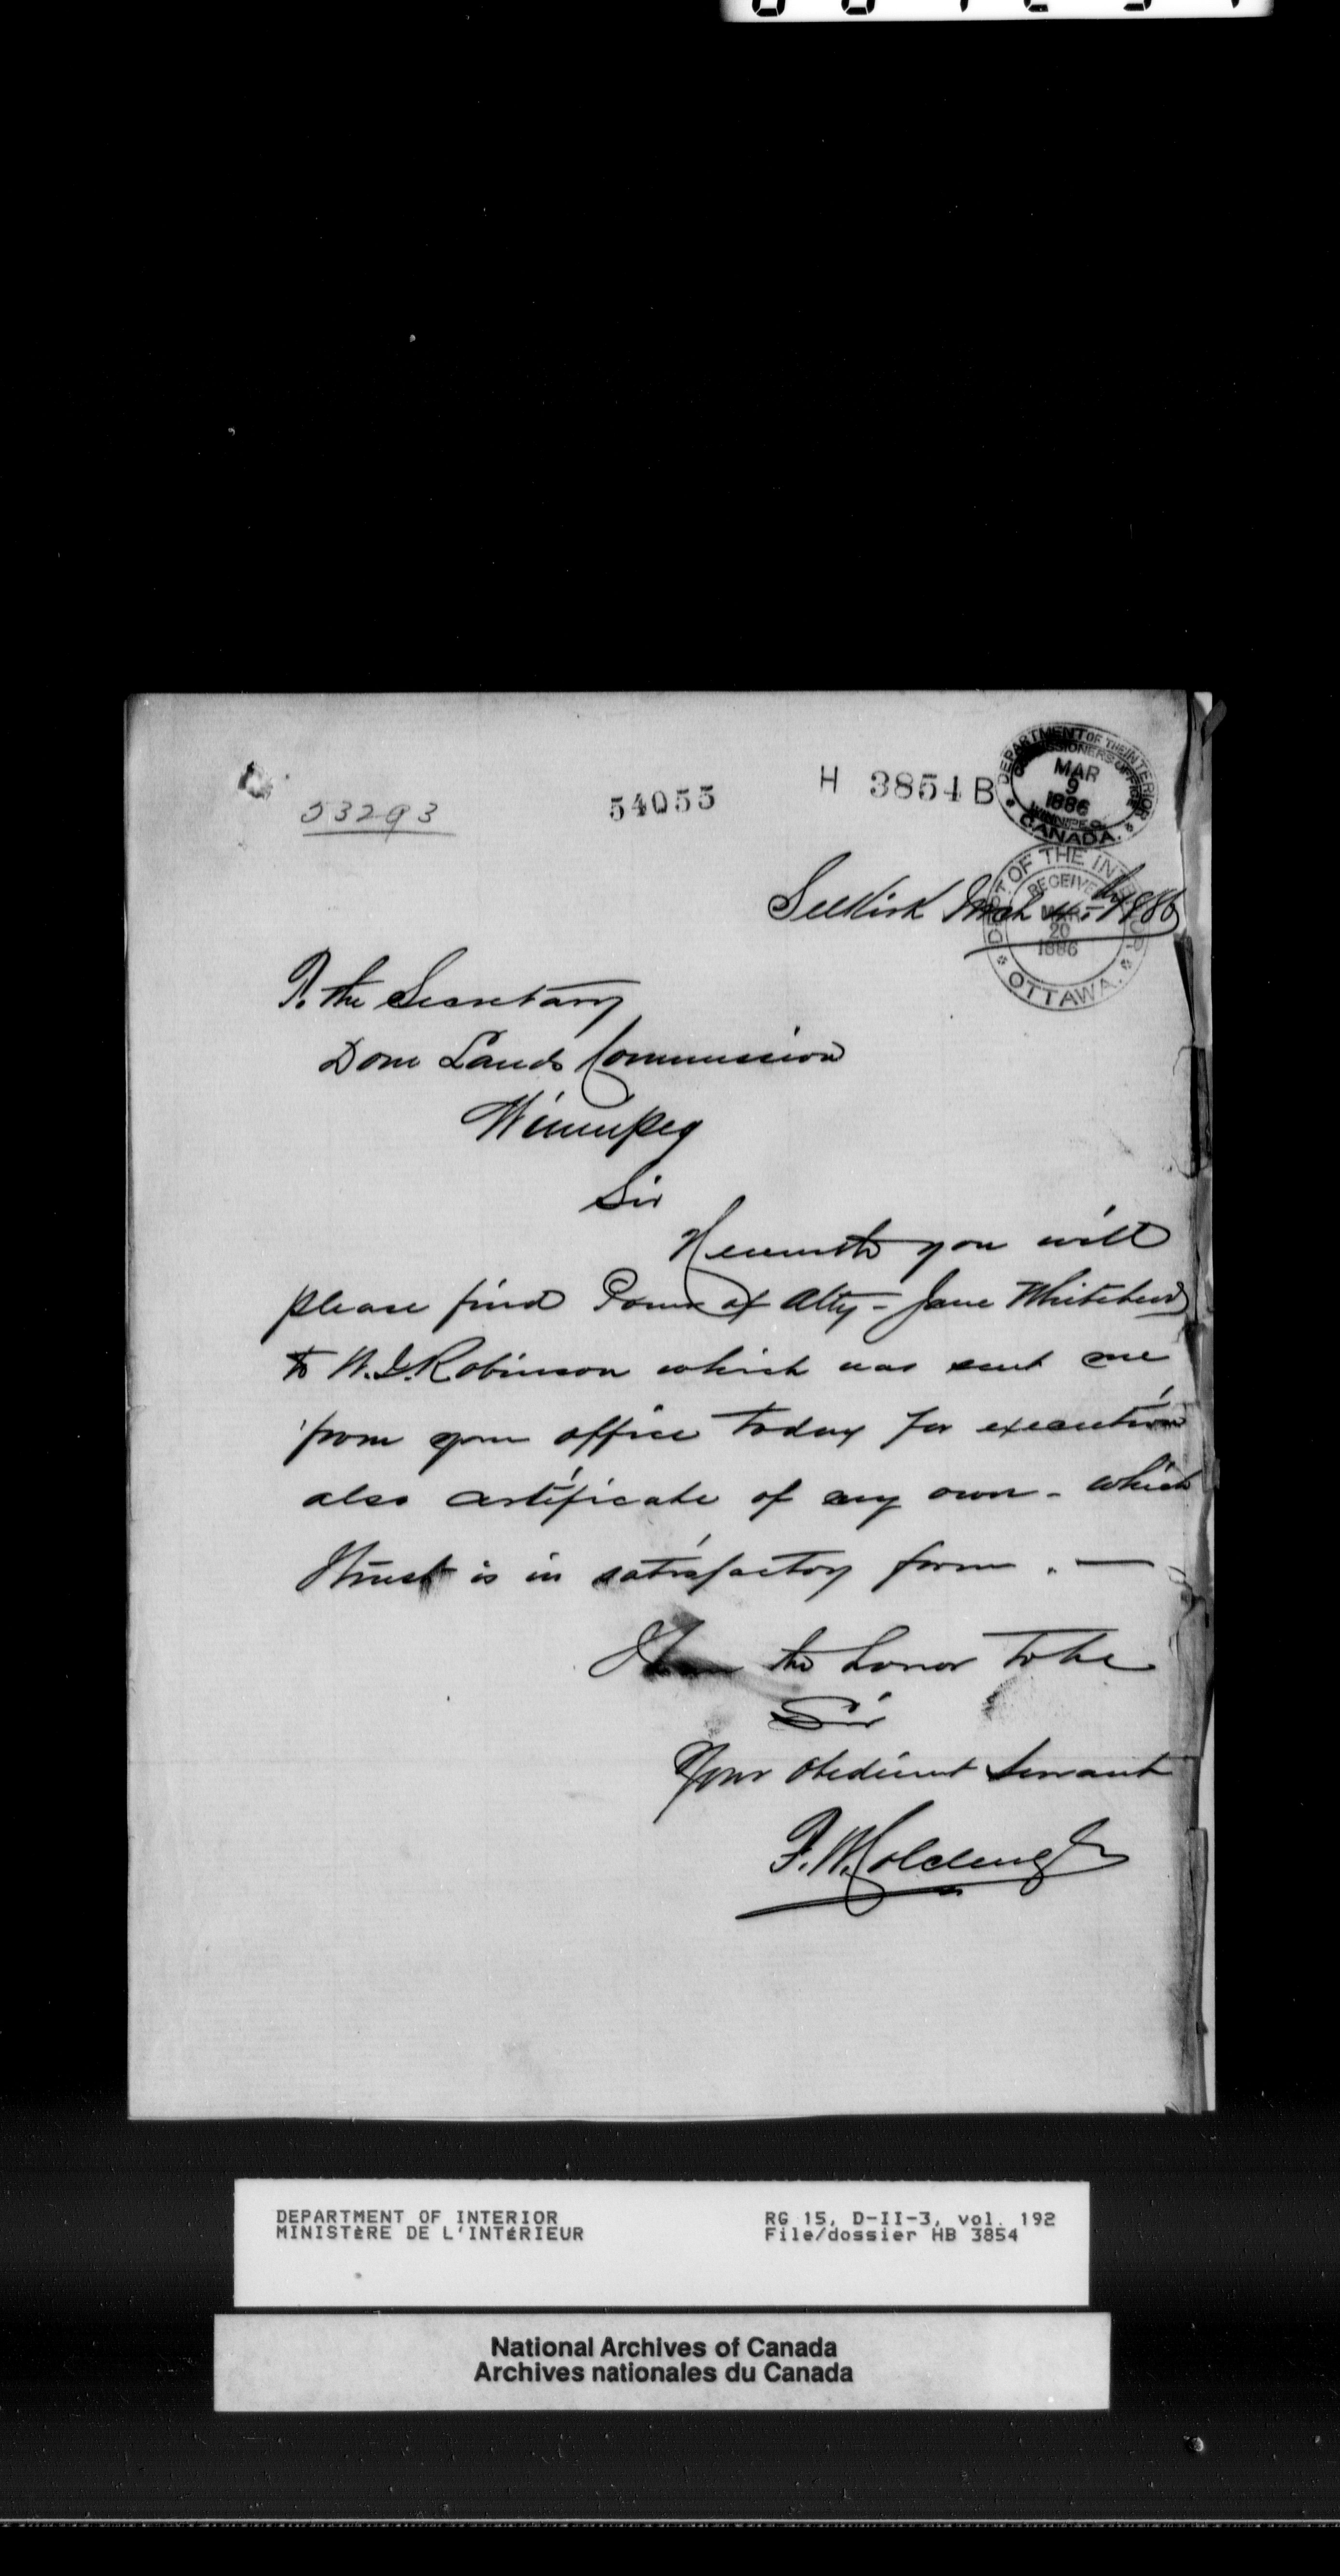 53293
54055
H 3854 B
DEPARTMENT OF THE INTERIOR
COMMISSIONERS OFFICE
MAR
9
1886
WINNIPEG
CANADA.
DEPT. OF THE INTERIOR
RECEIVED
MAR
20
1886
OTTAWA.
Selkirk Mch 1886
To the Secretary
Dom Lands Commission
Winnipeg
Sir
Herewith you will
please find Power of Atty - Jane Whitehead
to W. G. Robinson which was sent me
from your office today for execution
also certificate of my own - which
I trust is in satisfactory form . —
I have the honor to be
Sir
Your obedient servant
F. W. Colcleugh
DEPARTMENT OF INTERIOR
MINISTÈRE DE L'INTÉRIEUR
RG 15, D-II-3, vol. 192
File/dossier HB 3854
National Archives of Canada
Archives nationales du Canada